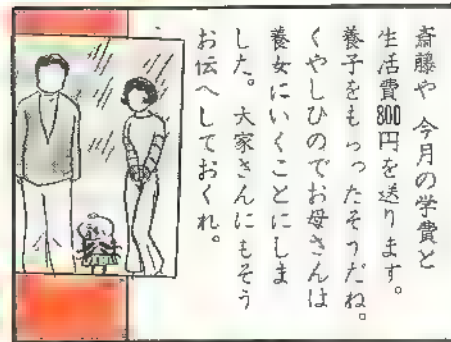 斎藤や 今月の学費と
生活費800円を送ります。
養子をもらったそうだね。
くやしひのでお母さんは
養女にいくことにしま
した。大家さんにもそう
お伝へしておくれ。